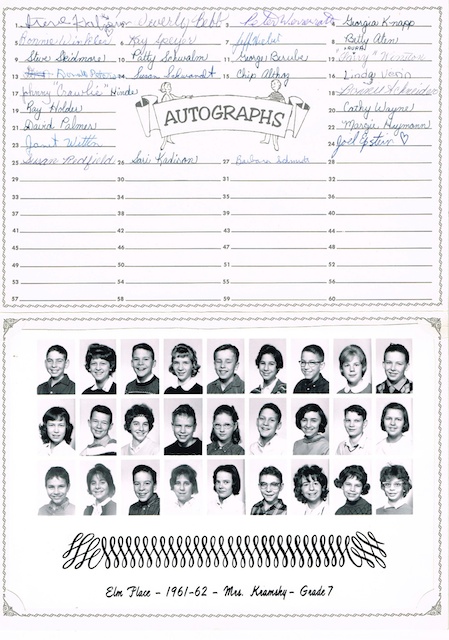 Steve Beverly Bebb 3 Peter 4 Georgia Knapp
Bonnie Winkler 6 Kay Speyer 7 Jeff 8 Billy Alen
Steve Skidmore 10 Patty Schwalm 11 George Berube 12 Winston
13 Donald Peters 14 Susan Schwandt 15 Chip Althoz 16 Linda
17 Johnny "Crawlie" Hinde 18 Schneider
19 Ray Holder 20 Cathy Wayne
AUTOGRAPHS
21 David Palmer 22 "Margie" Aymann
23 Janet Witten 24 Joel Epstein ♡
25 Susan Redfield 26 Sari Kadison 27 Barbara Schmidt 28
29 30 31 32
33 34 35 36
37 38 39 40
41 42 43 44
45 46 47 48
49 50 51 52
53 54 55 56
57 58 59 60
Elm Place - 1961-62 - Mrs. Kramsky - Grade 7